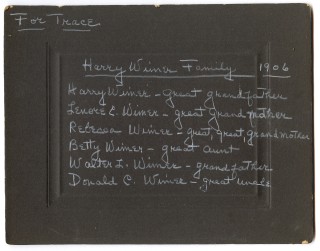 For Trace
Harry Wimer Family 1906
Harry Wimer - great grandfather
Lenore E. Wimer - great grandmother
Rebecca Wimer - great, great grandmother
Betty Wimer - great aunt
Walter L. Wimer - grandfather
Donald C. Wimer - great uncle